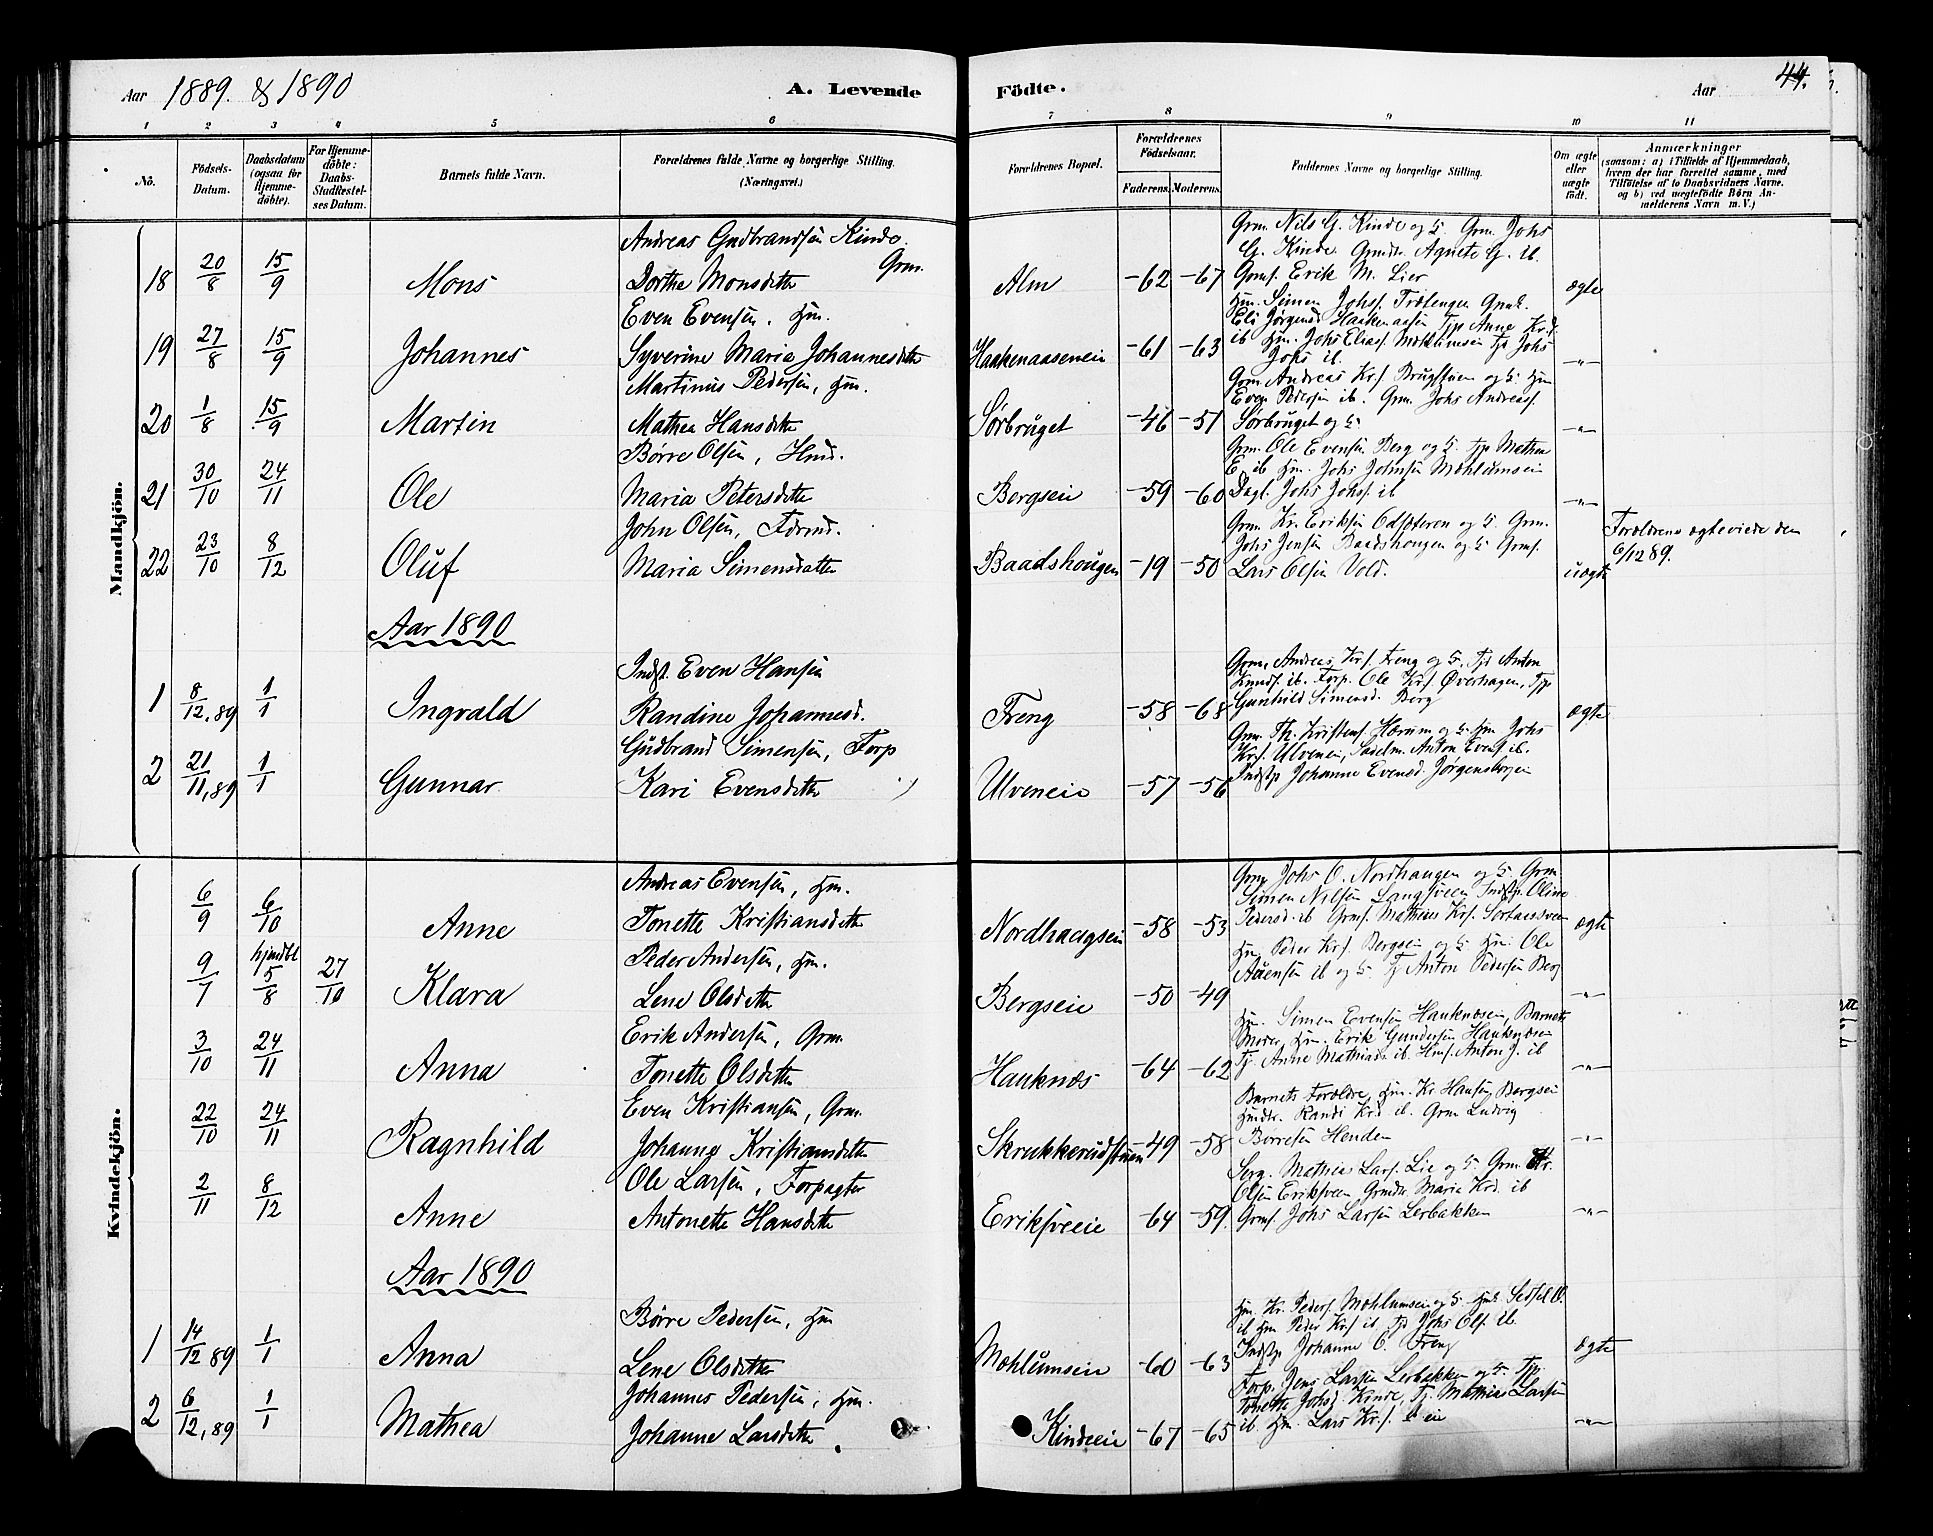 Aar 1889. & 1890 A. Levende Födte. Aar 44.
1 2 3 4 5 6 7 8 9 10 11
No. Födsels-Datum. Daabsdatum (ogsaa for Hjemmedöbte). For Hjemmedöbte: Daabs-Stadfestelses Datum. Barnets fulde Navn. Forældrenes fulde Navne og borgerlige Stilling. (Næringsvei.) Forældrenes Bopæl. Forældrenes Födselsaar. Faderens. Moderens. Faddernes Navne og borgerlige Stilling. Om ægte eller uægte födt. Anmærkninger (saasom: a) i Tilfælde af Hjemmedaab, hvem der har forrettet samme, med Tilföielse af to Daabsvidners Navne, og b) ved uægtefödte Börn Anmelderens Navn m. V.)
Mandkjön.
18 20/8 15/9 Mons Andreas Gudbrandsen Kinde. Grm. Dorthe Monsdatter Alm -62 -67 Grm. Nils G. Kinde og h. Grm. Johs G. Kinde. Grmdtr Agnete G. ib. Grms. Erik M. Lier ægte
19 27/8 15/9 Johannes Even Evensen. Hm. Syverine Maria Johannesdatter Haakenaaseneie -61 -63 Hm. Simen Johs. Eli Jørgensd. Haakenaasen Tjp Anne Kr.d. ib Hm. Johs Elias. Mohlumseie Tjd Johs Johs ib. -"-
20 1/8 15/9 Martin Martinus Pedersen, Hm. Mathea Hansdatter Sörbruget -46 -51 Grm. Andreas Kr.s. Brugstuen og h. Hm Even Pedersen ib. Grm. Johs Andreass. Sörbruget og h -"-
21 30/10 24/11 Ole Börre Olsen, Hmd. Maria Petersdatter Bergseie -59 -60 Grm. Ole Evensen Berg og h. Tjp Mathea E. ib Hm. Johs Johnsen Mohlumseie Dagl. Johs Johs. ib -"-
22 23/10 8/12 Oluf John Olsen, Fdrmd. Maria Simensdatter Baadshaugen -19 -50 Grm. Kr. Eriksen Odsæteren og h. Grm. Johs Jensen Baadshougen og h. Grms. Lars Olsen Vold. uægte Forældrene ægteviede den 6/12 89.
Aar 1890
1 8/12, 89 1/1 Ingvald Indst. Even Hansen Randine Johannesd. Freng -58 -68 Grm. Andreas Kr.s Freng og h. Tjd Anton Knuds. ib. Forp. Ole Kr.s Øverhagen, Tjp Gunhild Simensd. Berg ægte
2 21/11, 89 1/1 Gunnar Gudbrand Simensen, Forp Kari Evensdatter Ulveneie -57 -56 Grm. Th. Kristens. Hærum og h. Hm Johs Kr.s. Ulveneie, Sadelm. Anton Evens. ib. Indstp Johanne Evensd. Jørgensborgeie
Kvindekjön.
6/9 6/10 Anne Andreas Evensen, Hm. Tonette Kristiansdatter Nordhaugseie -58 -53 Grm Johs O. Nordhaugen og h. Grm. Simen Nilsen Langsveen Indstp. Oline Pedersd. ib Grms. Mathias Kr.s. ægte
9/7 hjmdbt 5/8 27/10 Klara Peder Andersen, Hm. Lene Olsdatter Bergseie -50 -49 Hm Peder Kr.s. Bergseie og h. Hm. Ole ib og h. Tj. Anton Pedersen Berg -"-
3/10 24/11 Anna Erik Andersen, Grm. Tonette Olsdatter Hauknæs -64 -62 Hm. Simen Evensen Hauknæseie, Barnets Moder, Hm. Erik Gundersen Hauknæseie Tj. Anne Mathiasd. ib. Hms. Anton J. ib -"-
22/10 24/11 Ragnhild Even Kristiansen, Grm. Johanne Kristiansdatter Skrukkerudstuen -49 -58 Barnets Forældre, Hm. Kr Hansen, Bergseie Hmdtr. Randi Kr.d. ib. Grm Ludvig Börresen Henden -"-
2/11 8/12 Anne Ole Larsen, Forpagter Antonette Hansdatter Eriksveeie -64 -59. Serg. Mathias Lars. Lie og h. Grm. Kr. Olsen Eriksveen, Grmdtr Maria Kr.d. ib Grms. Johs Larsen Lerbakken -"-
Aar 1890
1 14/12 89 1/1 Anna Börre Pedersen, Hm Lene Olsdatter Mohlumseie -60 -63 Hm. Kr. Peders. Mohlumseie og h. Hmk. Sedsel O. ib Hm Peder Kr.s ib, Tjd Johs Ols. ib. Indstp Johanne O. Freng ægte
2 6/12, 89 1/1 Mathea Johannes Pedersen, Hm. Johanne Larsdatter Kindeeie -67 -65 Forp. Jens Larsen Lerbakken og h. Tjp. Tonette Johsd. Kinde, Tj. Mathias Larsen ib. Hm. Lars Kr.s. eie -"-